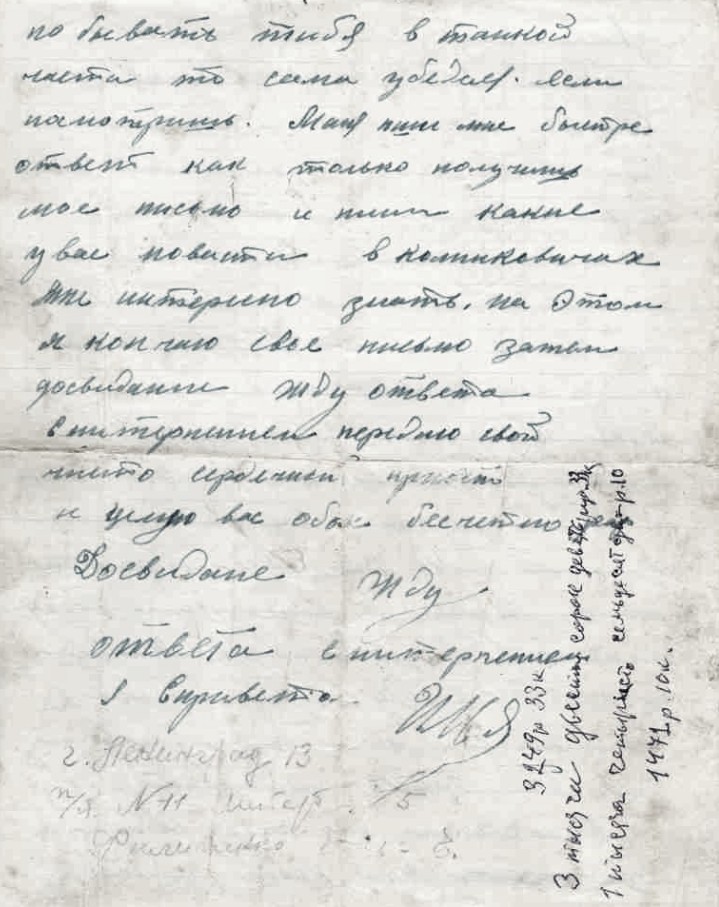 побывать тибя в танкой
части то сама убедеш. если
посмотришь. Маня пиши мне быстре
ответ как только получишь
мое письмо и пиши какие
у вас новости в
мне интересно знать. на этом
я кончаю свое письмо затем
досвидание жду ответа
снитерпением передаю свой
чисто сердечный привет
и целую вас обоих бесчетно раз
Досвидане жду
ответа снитерпением
г. Ленинград 13
п/я N 11 5
3249 р 33 к
3 тысячи двести сорок девять р. 33 к
1 тысяча четыреста семьдесят один р. 10
1471 р. 10 к.